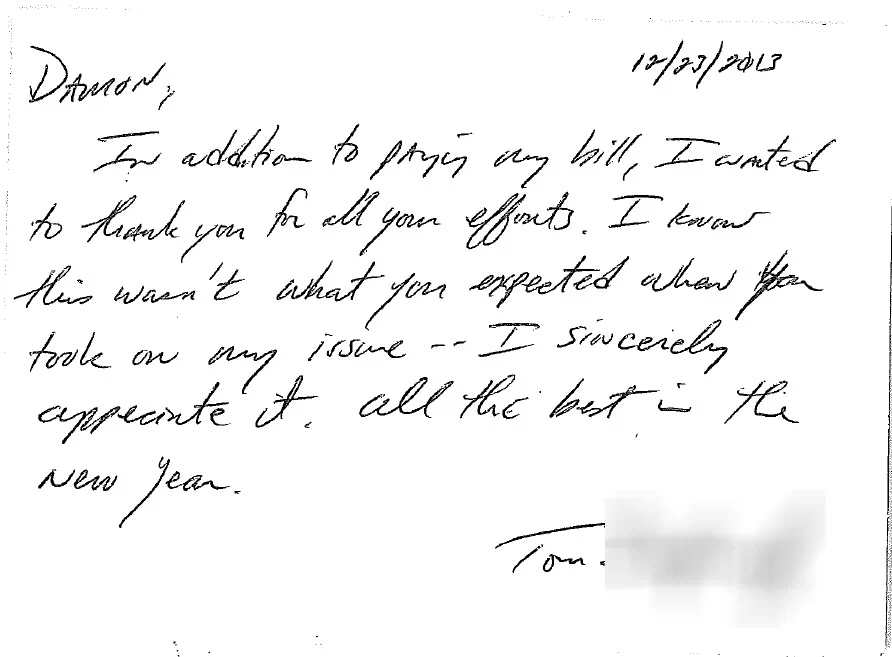 12/23/2013
Damon,
In addition to paying my bill, I wanted
to thank you for all your efforts. I know
this wasn't what you expected when you
took on my issue -- I sincerely
appreciate it. All the best in the
New Year.
Tom